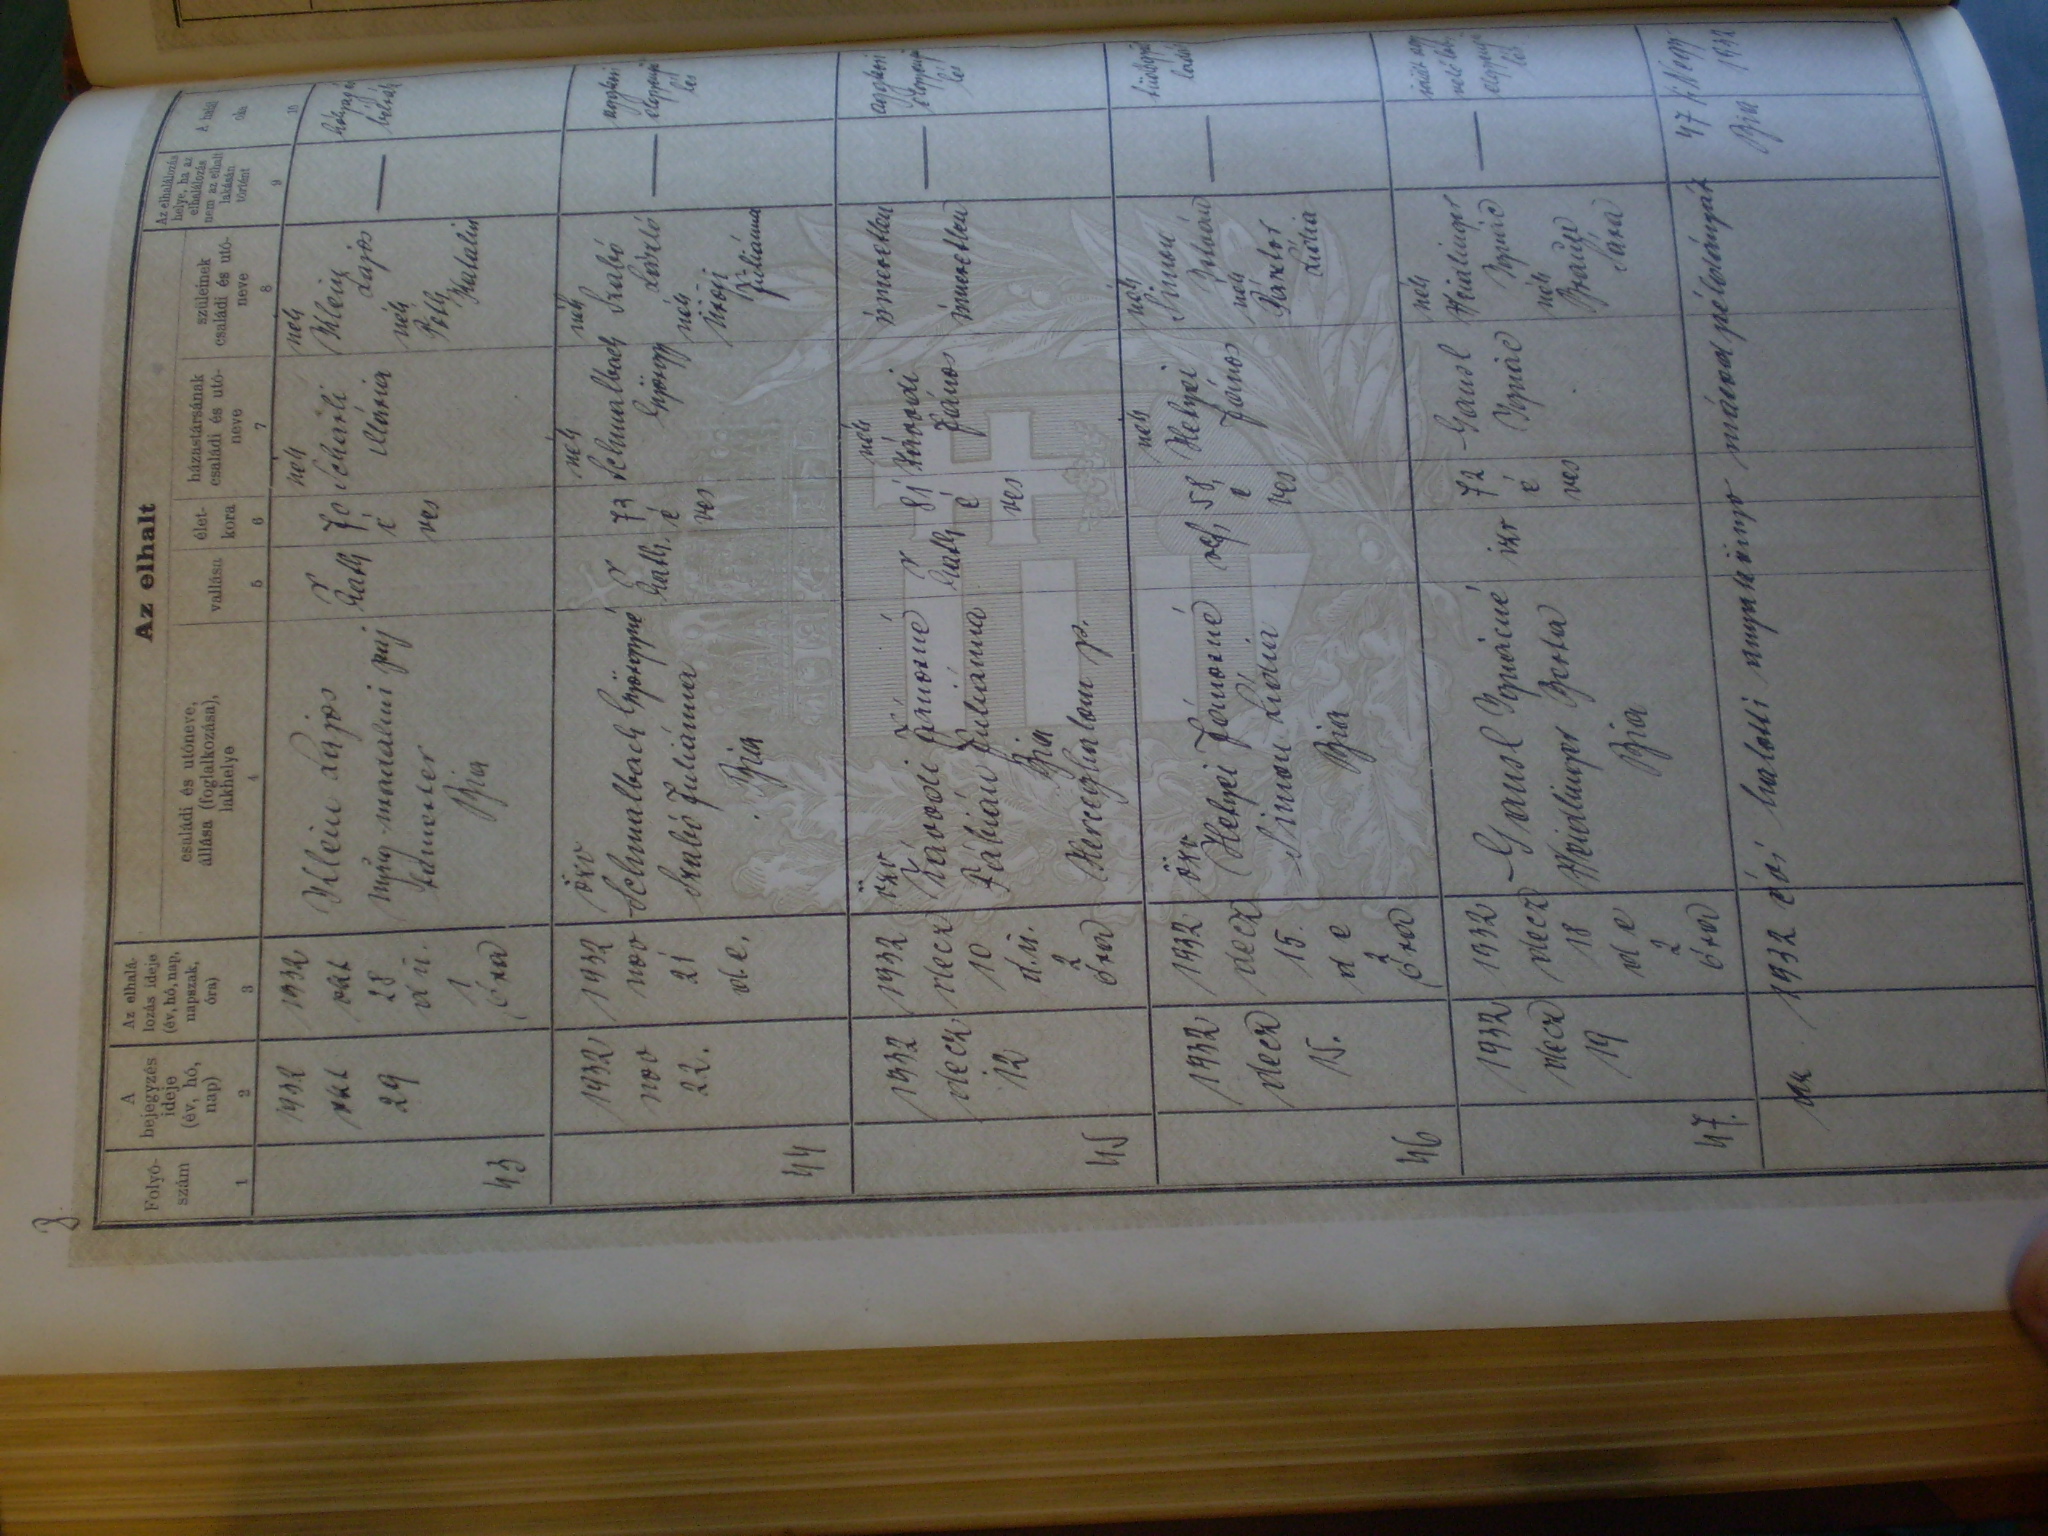 8
Az elhalt
Folyó-
szám
A
bejegyzés
ideje
(év, hó,
nap)
Az elhalá-
lozás ideje
(év, hó, nap,
napszak,
óra)
családi és utóneve,
állása (foglalkozása),
lakhelye
vallása
élet-
kora
házastársának
családi és utó-
neve
szüleinek
családi és utó-
neve
Az elhalálozás
helye, ha az
elhalálozás
nem az elhalt
lakásán
történt
A halál
oka
1
2
3
4
5
6
7
8
9
10
43
1932
okt
29
1932
okt
28
du.
1
óra
Klein Lajos
Bia
r
kath
70
é
ves
néh
Scherli
Mária
néh
Klein
Lajos
néh
Katalin
—
44
1932
nov
22.
1932
nov
21
de.
özv
Schmalbach Györgyné
Szabó Juliánna
Bia
r
kath.
73
é
ves
néh
Schmalbach
György
néh
Szabó
László
néh
Juliánna
—
aggkori
elgyengü
lés
45
1932
decz
12
1932
decz
10
d.u.
2
óra
özv
Károdi Jánosné
Fábián Juliánna
Bia
Herceghalom p.
r
kath
81
é
ves
néh
Károdi
János
ismeretlen
ismeretlen
—
aggkori
elgyengü
lés
46
1932
decz
15.
1932
decz
15.
d e
2
óra
özv
Helyei Jánosné
Simon Lidia
Bia
ref.
58
é
ves
néh
Helyei
János
néh
Simon
néh
Pásztor
Lidia
—
47.
1932
decz
19
1932
decz
18
d e
2
óra
Gansl Ignácné
Heidlinger Berta
Bia
izr
72
é
ves
Gansl
Ignác
néh
Heidlinger
Ignác
néh
Braun
Sára
—
az 1932 évi halotti anyakönyv másodpéldányát 47
Bia 1932